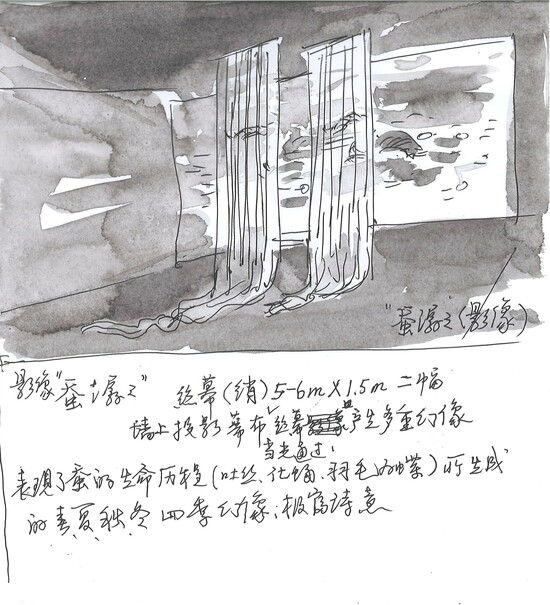 "蚕潺之"(影像)
影像"蚕·潺之" 丝幕(绡)5-6m×1.5m 二幅
墙上投影幕布 丝幕产生多重幻像
当光通过
表現了蚕的生命历程(吐丝、化蛹、羽毛)所生成
的春夏秋冬四季幻像;极富诗意